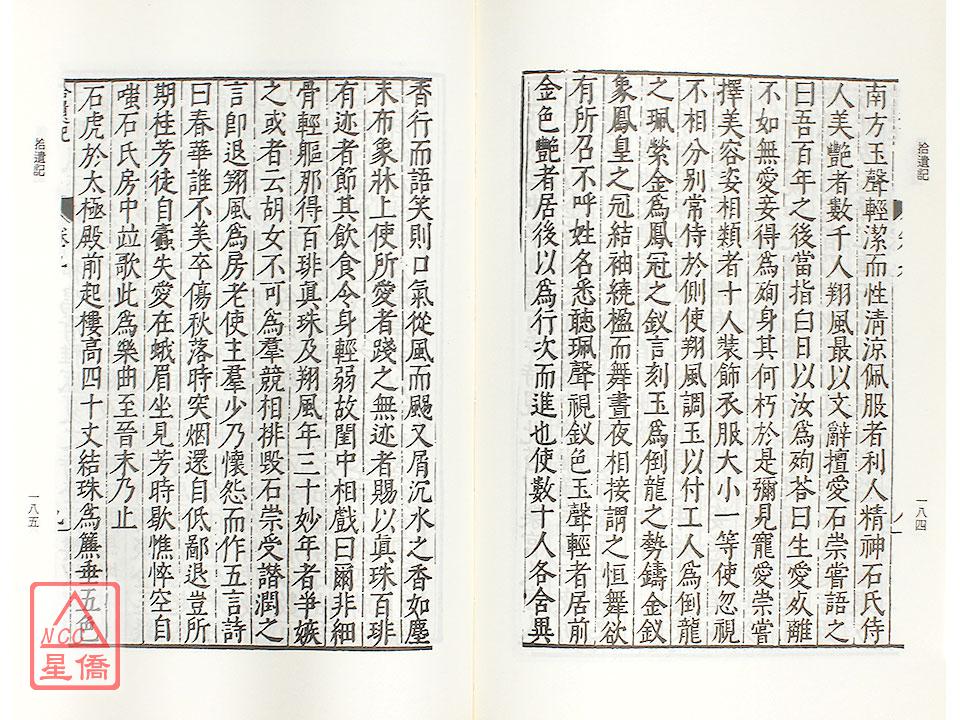 拾遺記
一八四
南方玉聲輕潔而性清涼佩服者利人精神石氏侍
人美艷者數千人翔風最以文辭擅愛石崇嘗語之
曰吾百年之後當指白日以汝為殉荅曰生愛死離
不如無愛妾得為殉身其何朽於是彌見寵愛崇嘗
擇美容姿相類者十人裝飾衣服大小一等使忽視
不相分别常侍於側使翔風調玉以付工人為倒龍
之珮縈金為鳳冠之釵言刻玉為倒龍之勢鑄金釵
象鳳皇之冠結袖繞楹而舞晝夜相接謂之恒舞欲
有所召不呼姓名悉聽珮聲視釵色玉聲輕者居前
金色艷者居後以為行次而進也使數十人各含異
香行而語笑則口氣從風而颺又屑沉水之香如塵
末布象牀上使所愛者踐之無迹者賜以真珠百琲
有迹者節其飲食令身輕弱故閨中相戲曰爾非細
骨輕軀那得百琲真珠及翔風年三十妙年者爭嫉
之或者云胡女不可為羣競相排毀石崇受譖潤之
言即退翔風為房老使主羣少乃懷怨而作五言詩
曰春華誰不美卒傷秋落時突烟還自低鄙退豈所
期桂芳徒自蠹失愛在蛾眉坐見芳時歇憔悴空自
嗤石氏房中並歌此為樂曲至晉末乃止
石虎於太極殿前起樓高四十丈結珠為簾垂五色
拾遺記
一八五
NCC
星僑